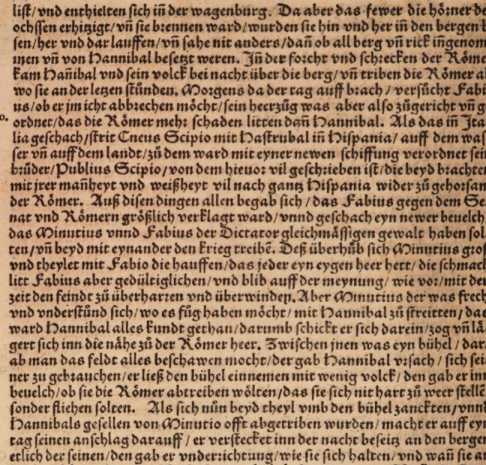 list/vnd enthielten sich iñ der wagenburg. Da aber das fewer die hörner de
ochssen erhitzigt/vñ sie brennen ward/wurden sie hin vnd her iñ den bergen l
sen/her vnd dar lauffen/vñ sahe nit anders/dañ ob all berg vñ rick iñgenom
men vñ von Hannibal besetzt weren. Jñ der forcht vnd schrecken der Röme
kam Hañibal vnd sein volck bei nacht über die berg/vñ triben die Römer al
wo sie an der letzen stůnden. Morgens da der tag auff brach/versůcht Fabi
us/ob er jm icht abbrechen möcht/sein heerzüg was aber also zůgericht vñ g
ordnet/das die Römer mehr schaden litten dañ Hannibal. Als das iñ Jta
lia geschach/strit Cneus Scipio mit Hastrubal iñ Hispania/auff dem was
ser vñ auff dem landt/zů dem ward mit eyner newen schiffung verordnet sein
brůder/Publius Scipio/von dem hieuor vil geschriben ist/die beyd brachten
mit jrer mañheyt vnd weißheyt vil nach gantz Hispania wider zů gehorsam
der Römer. Auß disen dingen allen begab sich/das Fabius gegen dem Se
nat vnd Römern größlich verklagt ward/vnnd geschach eyn newer beuelch
das Minutius vnnd Fabius der Dictator gleichmässigen gewalt haben sol
ten/vñ beyd mit eynander den krieg treibē. Deß überhůb sich Minutius gros
vnd theylet mit Fabio die hauffen/das jeder eyn eygen heer hett/die schmach
litt Fabius aber gedültiglichen/vnd blib auff der meynung/wie vor/mit der
zeit den feindt zů überharren vnd überwinden. Aber Minutius der was frech
vnd vnderstůnd sich/wo es fůg haben möcht/mit Hannibal zů streitten/das
ward Hannibal alles kundt gethan/darumb schickt er sich darein/zog vñ lä
gert sich inn die nähe zů der Römer heer. Zwischen jnen was eyn bühel/dar
ab man das feldt alles beschawen mocht/der gab Hannibal vrsach/sich sei
ner zů gebrauchen/er ließ den bühel einnemen mit wenig volck/den gab er im
beuelch/ob sie die Römer abtreiben wölten/das sie sich nit hart zů weer stellē
sonder fliehen solten. Als sich nůn beyd theyl vmb den bühel zanckten/vnnd
Hannibals gesellen von Minutio offt abgetriben wurden/macht er auff eyn
tag seinen anschlag darauff/er versteckt inn der nacht beseitz an den bergen
etlich der seinen/den gab er vnderrichtung/wie sie sich halten/vnd wañ sie an